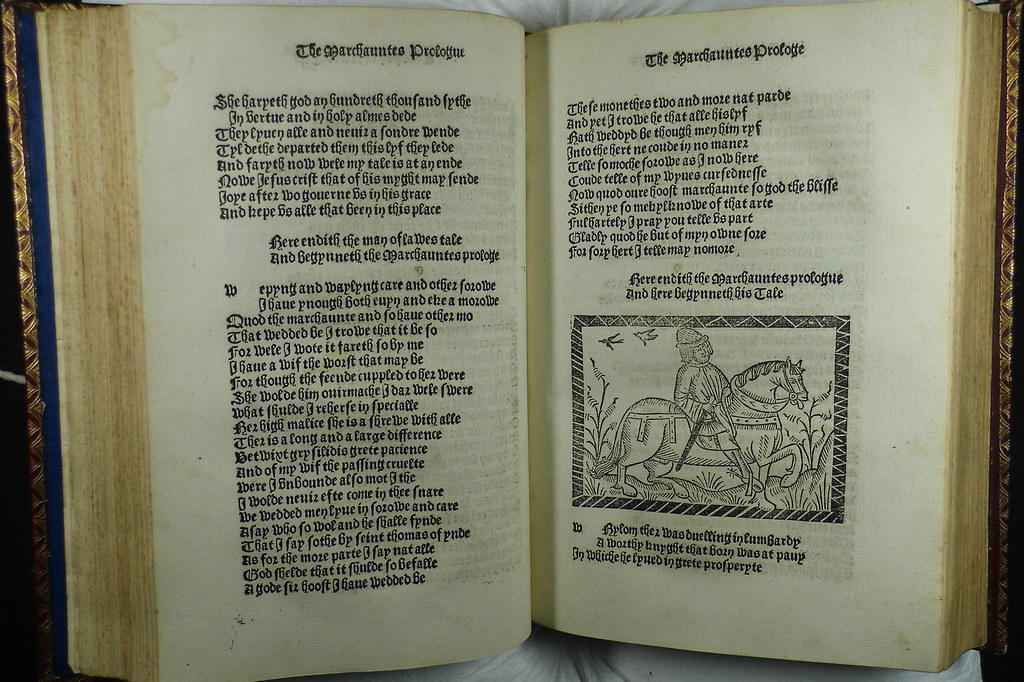 The Marchauntes Prologue
She haryeth god an hundreth thousand sythe
In vertue and in holy almes dede
They lyuen alle and neuir a sondre wende
Tyl dethe departed them this lyf they lede
And faryth now wele my tale is at an ende
Nowe Jesus crist that of his myght may sende
Joye after wo gouerne vs in his grace
And kepe vs alle that been in this place
Here endith the man of lawes tale
And begynneth the Marchauntes prologe
w epyng and waylyng care and other sorowe
I haue ynough both euyn and eke a morowe
Quod the marchaunte and so haue other mo
That wedded be I trowe that it be so
For wele I wote it fareth so by me
I haue a wif the worst that may be
For though the feende cuppled to her were
She wolde him ouirmache I dar wele swere
what shulde I reherse in specialle
Her high malice she is a shrewe with alle
Ther is a long and a large difference
Betwixt grysildis grete pacience
And of my wif the passing cruelte
were I vnbounde also mot I the
I wolde neuir efte come in thee snare
we wedded men lyue in sorowe and care
Asay who so wol and he shalle fynde
That I say sothe by seint thomas of ynde
As for the more parte I say nat alle
God shelde that it shulde so befalle
A gode sir hoost I haue wedded be
The Marchauntes Prologe
These monethes two and more nat parde
And yet I trowe he that alle his lyf
Hath weddyd be though men him ryf
Into the hert ne coude in no maner
Telle so moche sorowe as I now here
Coude telle of my wyues cursednesse
Now quod oure hoost marchaunte so god the blisse
Sithen ye so mekyl knowe of that arte
Ful hartely I pray you telle vs part
Gladly quod he but of myn owne sore
For sory hert I telle may nomore
Here endith the Marchauntes prologue
And here begynneth his Tale
w Hylom ther was duelling in lumbardy
A worthy knyght that born was at pauy
In whiche he lyued in grete prosperyte